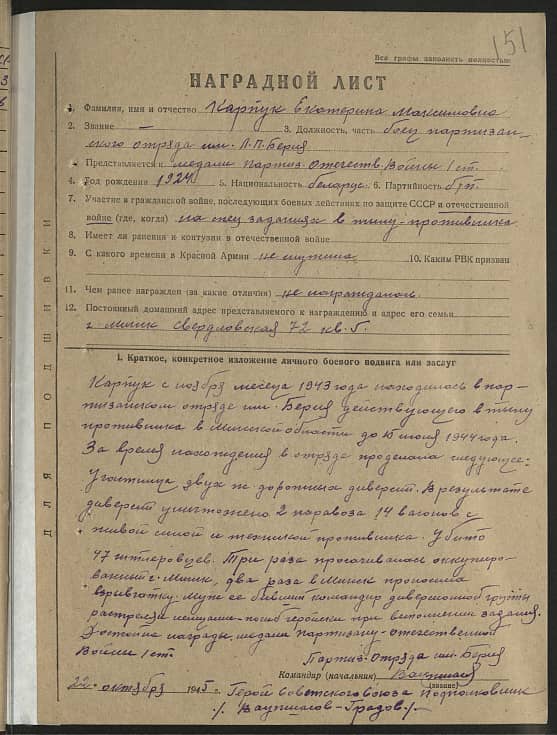 151
Все графы заполнять полностью
НАГРАДНОЙ ЛИСТ
1. Фамилия, имя и отчество Карпук Екатерина Максимовна
2. Звание — 3. Должность, часть боец партизан-
ского отряда им. Л.П. Берия
Представляется к медали Партиз. Отечеств. Войны 1 ст.
4. Год рождения 1924 5. Национальность беларус. 6. Партийность б/п.
7. Участие в гражданской войне, последующих боевых действиях по защите СССР и отечественной
войне (где, когда) на спец заданиях в тылу противника
8. Имеет ли ранения и контузии в отечественной войне
9. С какого времени в Красной Армии не служила 10. Каким РВК призван
11. Чем ранее награжден (за какие отличия) не награждалась.
12. Постоянный домашний адрес представляемого к награждению и адрес его семьи
г. Минск Свердловская 72 кв. 5.
1. Краткое, конкретное изложение личного боевого подвига или заслуг
Карпук с ноября месеца 1943 года находилась в пар-
тизанском отряде им. Берия действующего в тылу
противника в Минской области до 10 июля 1944 года.
За время нахождения в отряде проделала следующее:
Участница двух ж дорожных диверсий. В результате
диверсий уничтожено 2 паравоза 14 вагонов с
живой силой и техникой противника. Убито
47 гитлеровцев. Три раза
ванный г. Минск, два раза в Минск проносила
взрывчатку. Муж ее бывший командир диверсионной группы
растрелян немцами - погиб геройски при выполнении задания.
Достойна награды медали партизану - отечественной
Войны 1 ст.
Партиз. Отряда им. Берия
Командир (начальник) Ваупшасов
(звание)
22 октября 1945 г. Герой Советского Союза подполковник
/ Ваупшасов-Градов. /
ДЛЯ ПОДШИВКИ